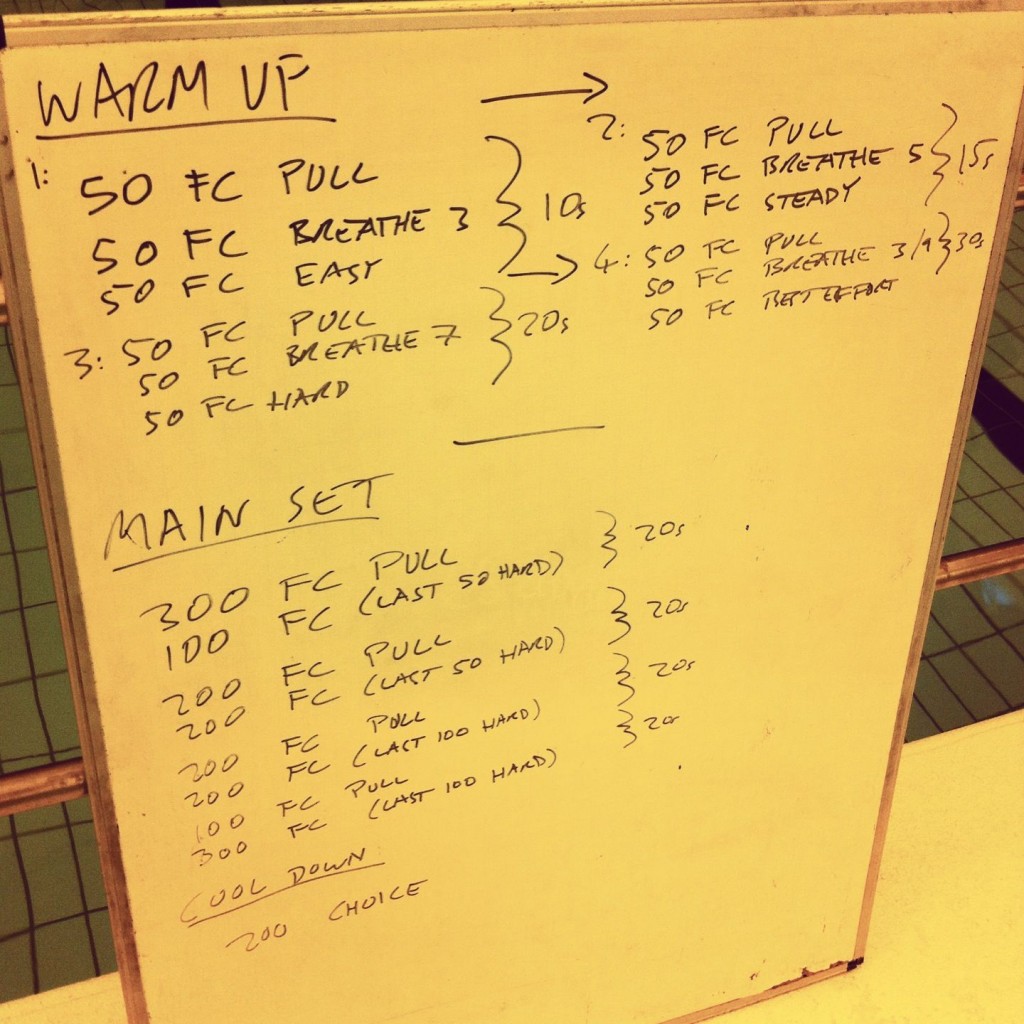 WARM UP →
1: 50 FC PULL
50 FC BREATHE 3
50 FC EASY
} 10s
2: 50 FC PULL
50 FC BREATHE 5
50 FC STEADY
} 15s
3: 50 FC PULL
50 FC BREATHE 7
50 FC HARD
} 20s
→ 4: 50 FC PULL
50 FC BREATHE 3/9
50 FC BEST EFFORT
} 30s
MAIN SET
300 FC PULL
100 FC (LAST 50 HARD)
} 20s
200 FC PULL
200 FC (LAST 50 HARD)
} 20s
200 FC PULL
200 FC (LAST 100 HARD)
} 20s
100 FC PULL
300 FC (LAST 100 HARD)
} 20s
COOL DOWN
200 CHOICE